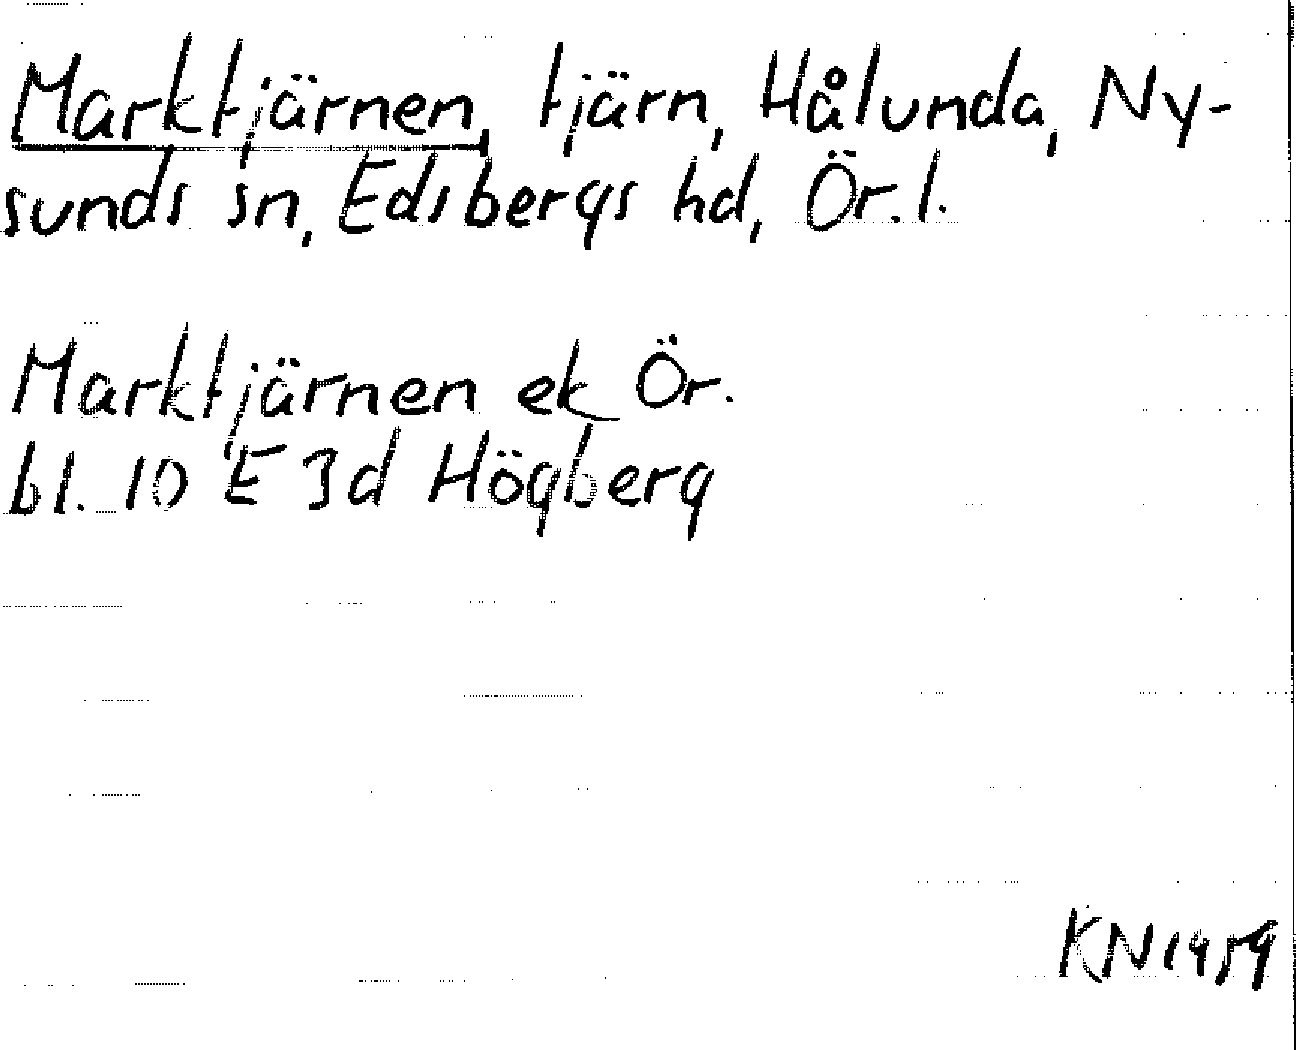 Marktjärnen, tjärn, Hålunda, Ny-
sunds sn, Edsbergs hd, Ör. l.
Marktjärnen ek Ör.
bl. 10 E 3d Högberg
KN 1959